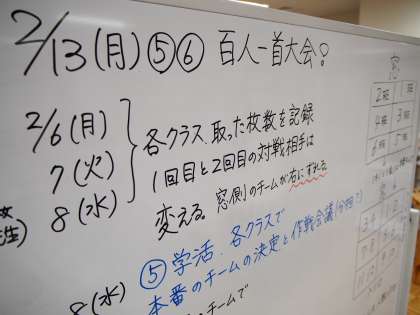 2/13(月)⑤⑥ 百人一首大会!
2/6(月)
7(火)
8(水)
各クラス、取った枚数を記録
1回目と2回目の対戦相手は
変える。窓側のチームが右にずれる
⑤学活 各クラスで
本番のチームの決定と作戦会議
8(水)
チームで
窓
2班
1班
4班
3班
6班
5班